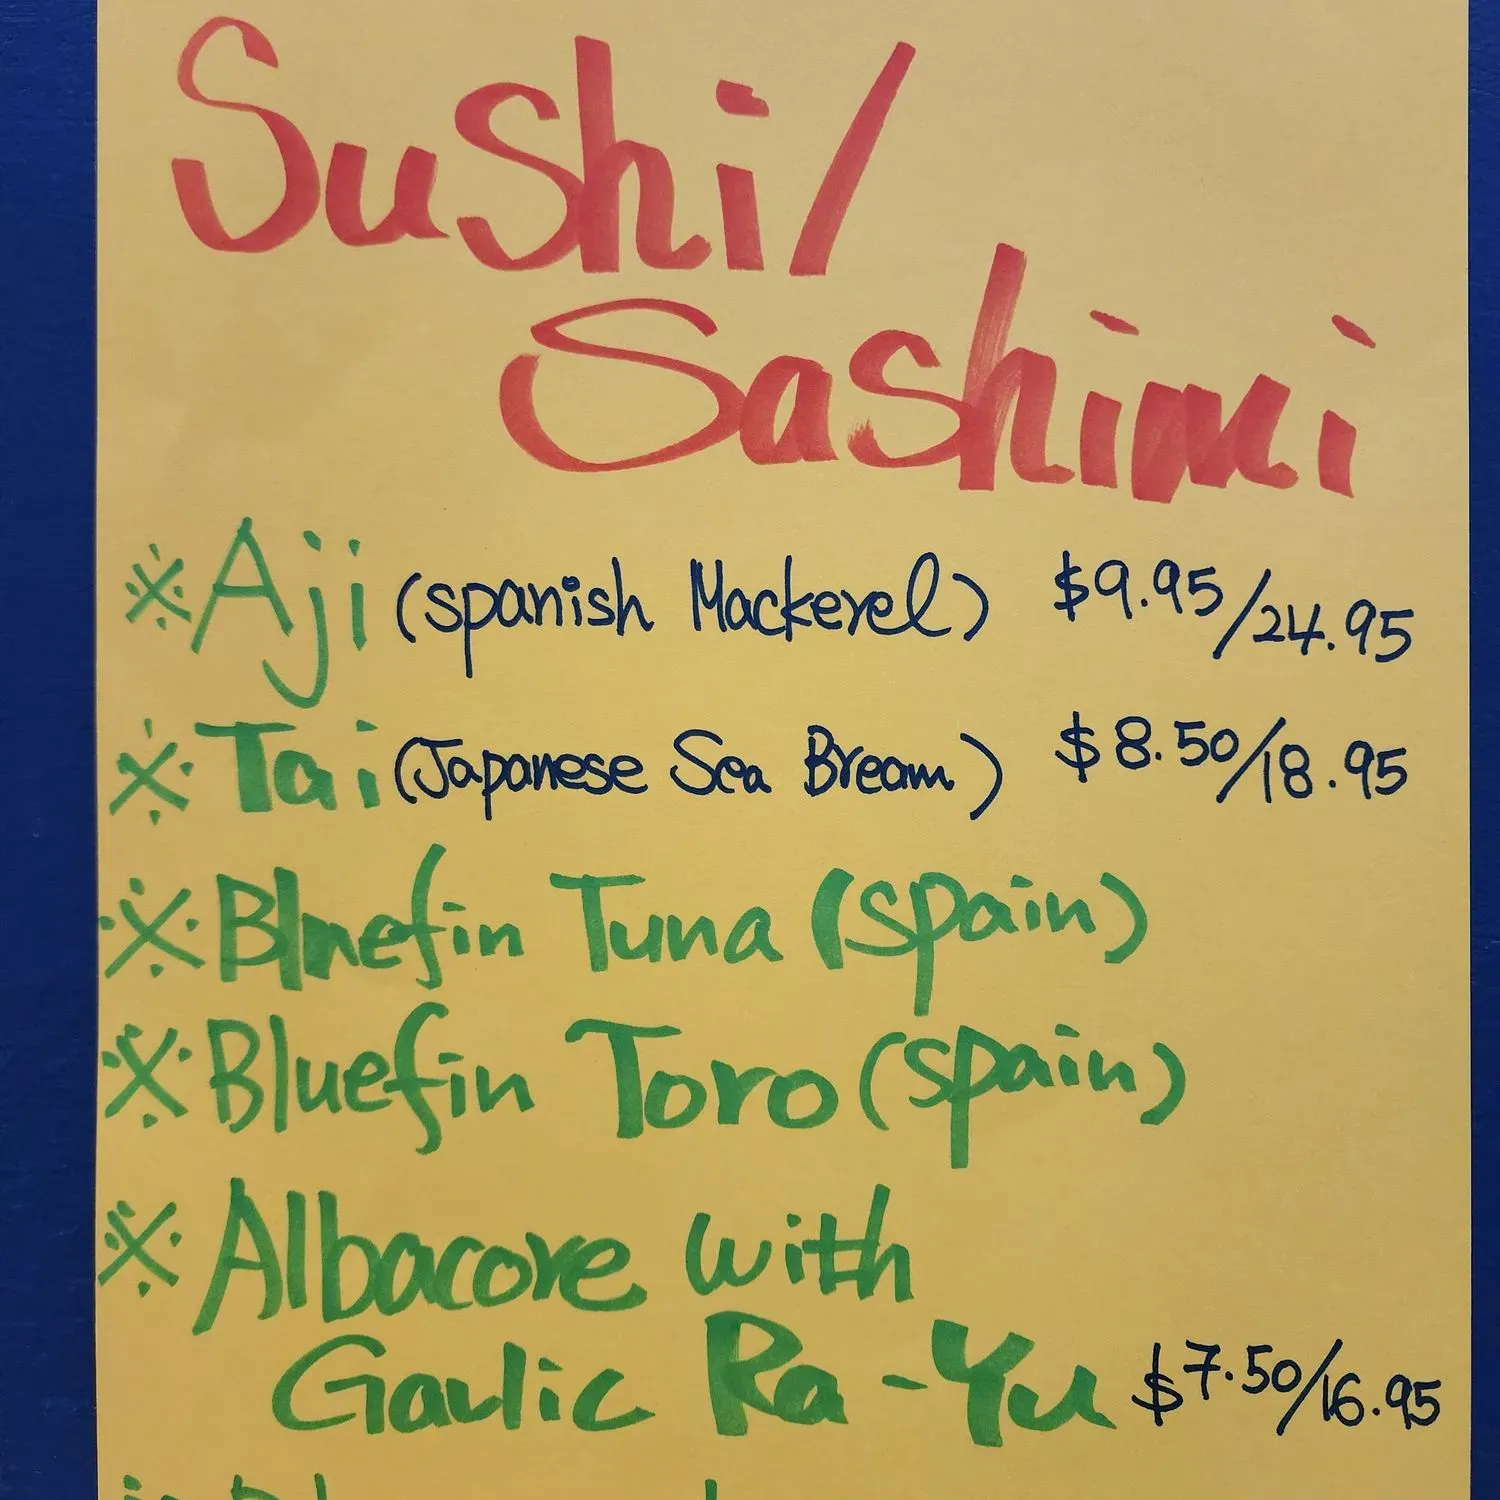 Sushi/
Sashimi
※Aji (spanish Mackerel) $9.95/24.95
※Tai (Japanese Sea Bream) $8.50/18.95
※Bluefin Tuna (spain)
※Bluefin Toro (spain)
※Albacore with
Garlic Ra-Yu $7.50/16.95